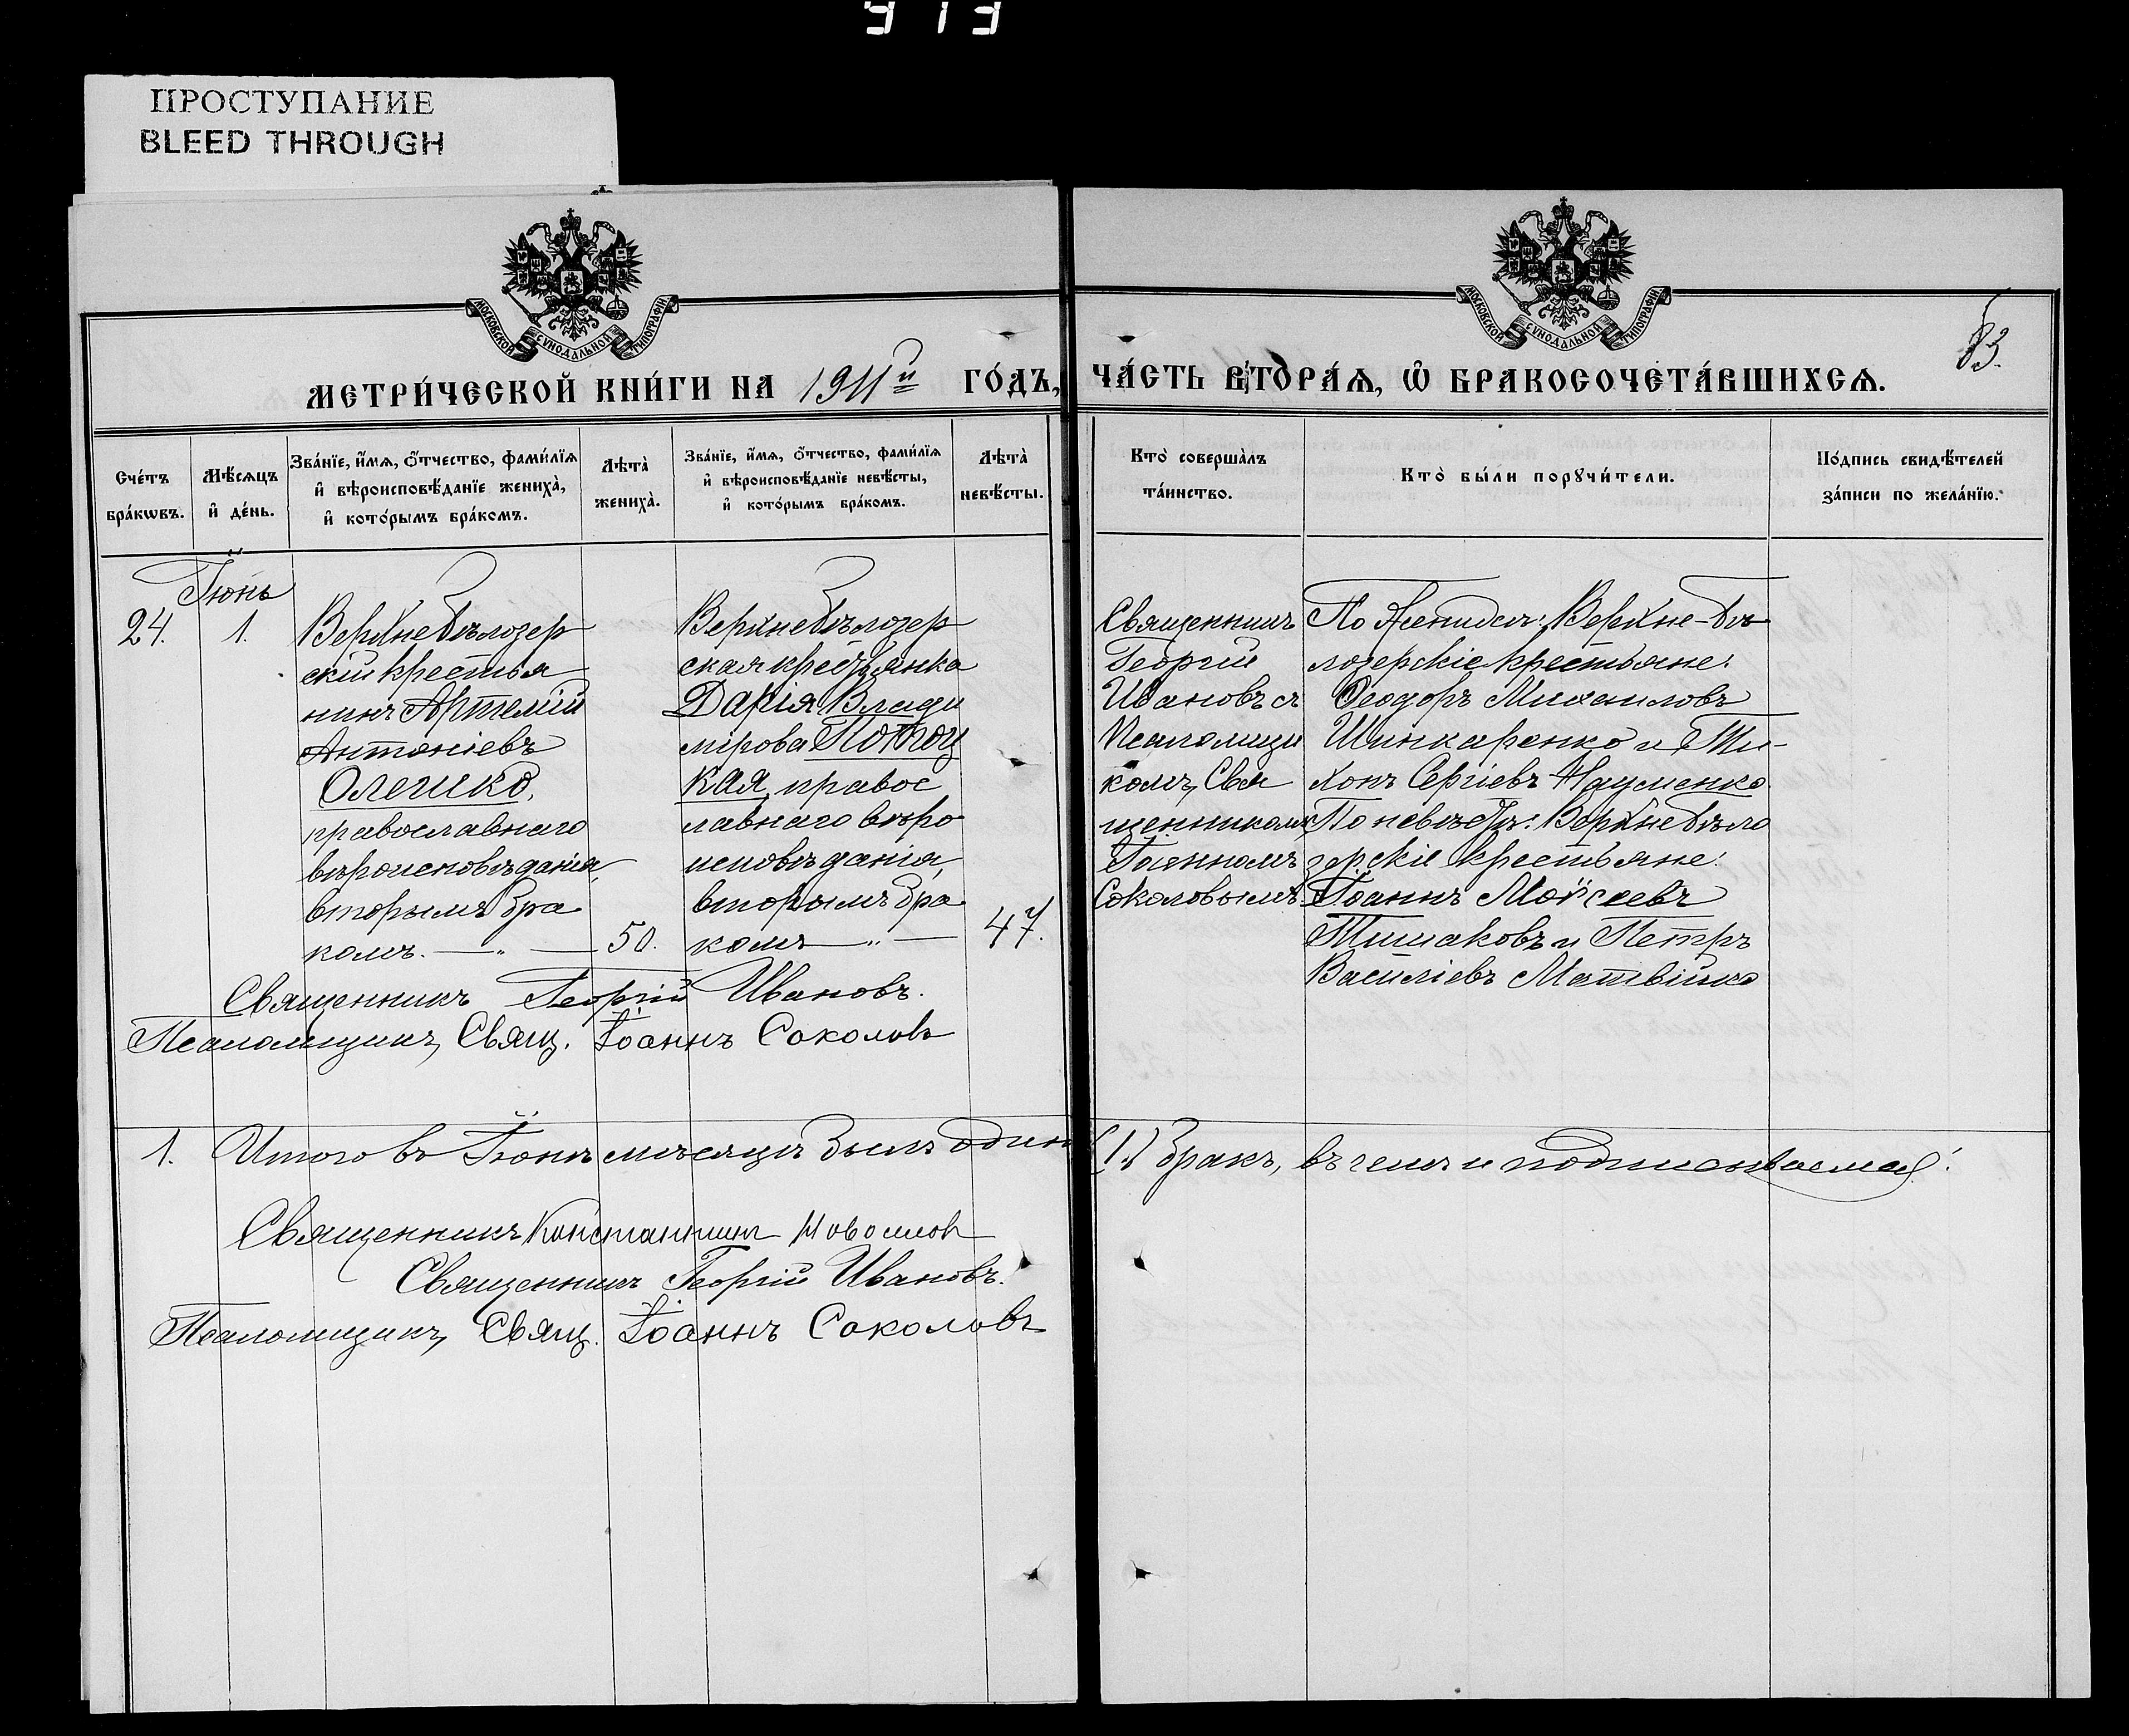 313
ПРОСТУПАНИЕ
BLEED THROUGH
МОСКОВСКОЙ СѴНОДАЛЬНОЙ ТИПОГРАФІИ
МОСКОВСКОЙ СѴНОДАЛЬНОЙ ТИПОГРАФІИ
83.
МЕТРИ́ЧЕСКОЙ КНИ́ГИ НА 1911й ГО́ДЪ, ЧА́СТЬ ВТОРА́Ѧ, Ѽ БРАКОСОЧЕТА́ВШИХСѦ.
Сче́тъ бра́кѡвъ.
Мѣ́сѧцъ и҆ де́нь.
Зва́нїе, и҆́мѧ, ѻ҆́тчество, фамѝлїѧ
и҆ вѣроисповѣ́данїе жениха̀,
и҆ кото́рымъ бра́комъ.
Лѣта̀ жениха̀.
Зва́нїе, и҆́мѧ, ѻ҆́тчество, фамѝлїѧ
и҆ вѣроисповѣ́данїе невѣ́сты,
и҆ кото́рымъ бра́комъ.
Лѣта̀ невѣ́сты.
Кто̀ соверша̀лъ
та́инство.
Кто̀ бы́ли порꙋчи́тели.
По́дпись свидѣ́телей
за́писи по жела́нїю.
Іюнь
24.
1.
Верхнебѣлозер
скій крестья
нинъ Артемій
Антоніевъ
Олешко,
православнаго
вѣроисповѣданія,
вторымъ бра
комъ. — „ —
50.
Верхнебѣлозер
ская крестьянка
Дарія Влади
мірова Потоц
кая, правос
лавнаго вѣро
исповѣданія,
вторымъ бра
комъ — „ —
47.
Священникъ
Георгій
Ивановъ съ
Псаломщи
комъ, Свя
щенникомъ
Іоанномъ
Соколовымъ.
По женихѣ: Верхне-бѣ
лозерскіе крестьяне:
Ѳеодоръ Михаиловъ
Шинкаренко и Ти-
хонъ Сергіевъ Науменко.
По невѣстѣ: Верхнебѣло
зерскіе крестьяне:
Іоаннъ Моисеевъ
Тишаковъ и Петръ
Василіевъ Матвійко
Священникъ Георгій Ивановъ.
Псаломщикъ, Свящ. Іоаннъ Соколовъ
1. Итого въ Іюнѣ мѣсяцѣ былъ одинъ (1.) бракъ, въ чемъ и подписываемся:
Священникъ Константинъ
Священникъ Георгій Ивановъ.
Псаломщикъ, Свящ. Іоаннъ Соколовъ